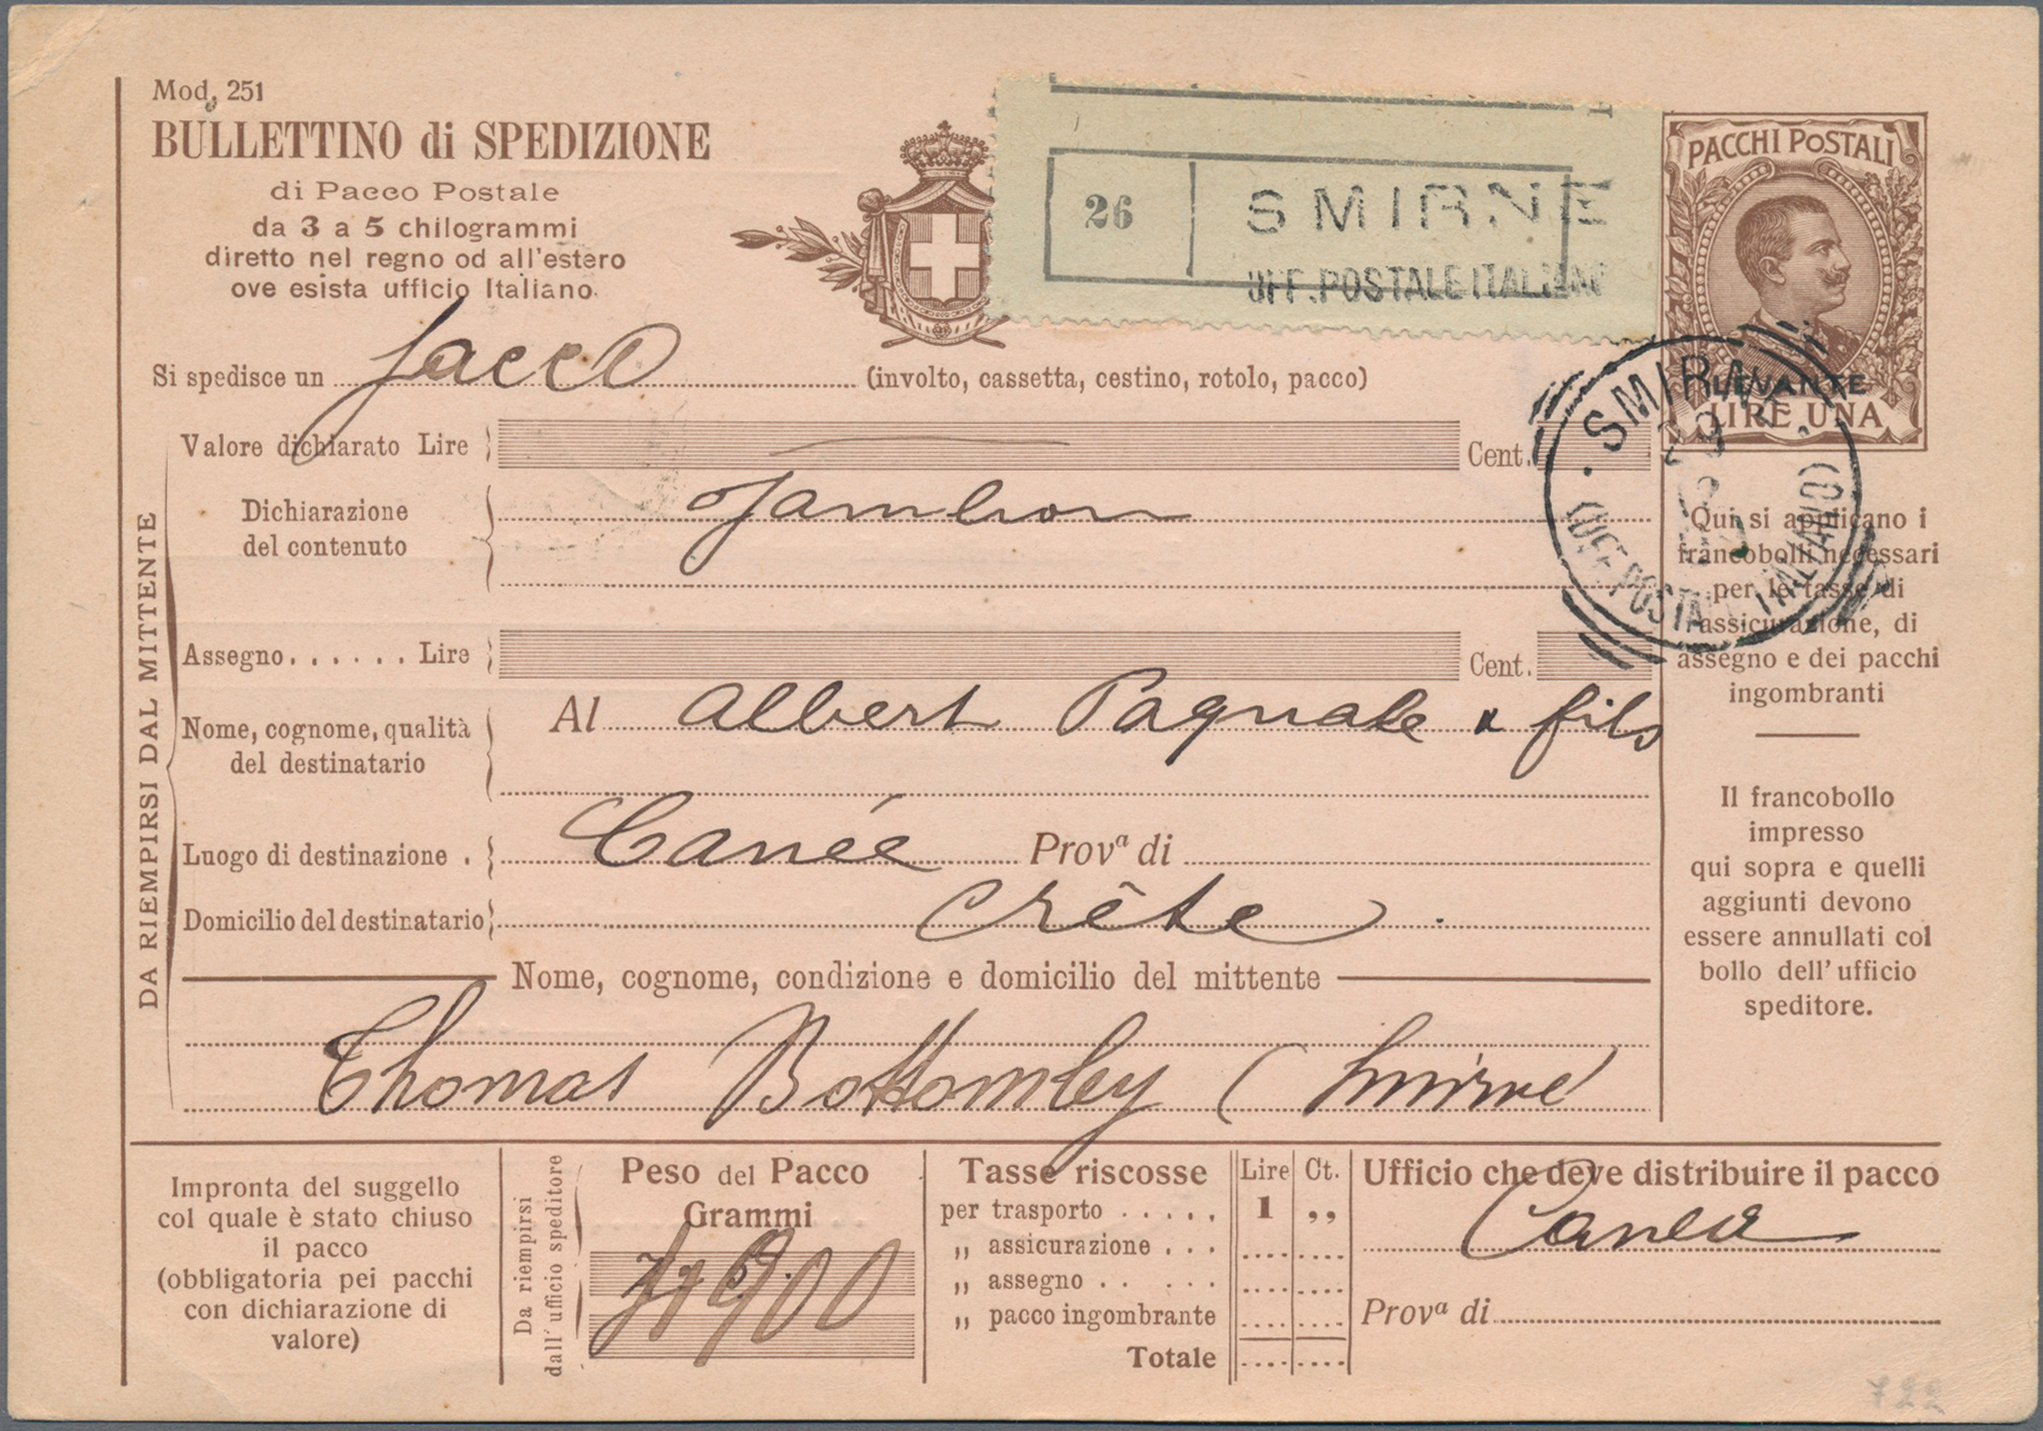 Mod. 251
BULLETTINO di SPEDIZIONE
di Pacco Postale
da 3 a 5 chilogrammi
diretto nel regno od all'estero
ove esista ufficio Italiano.
26 SMIRNE
UFF. POSTALE ITALIANO
PACCHI POSTALI
LEVANTE
LIRE UNA
SMIRNE
(UFF. POSTALE ITALIANO)
Si spedisce un sacco (involto, cassetta, cestino, rotolo, pacco)
Valore dichiarato Lire Cent.
Dichiarazione
del contenuto
Jambon
Assegno...... Lire Cent.
Nome, cognome, qualità
del destinatario
Al Albert Paquale & fils
Luogo di destinazione . Canée Provª di
Domicilio del destinatario Crête.
Nome, cognome, condizione e domicilio del mittente
Thomas Bottomley (Smirne)
DA RIEMPIRSI DAL MITTENTE
Qui si applicano i
francobolli necessari
per le tasse di
assicurazione, di
assegno e dei pacchi
ingombranti
Il francobollo
impresso
qui sopra e quelli
aggiunti devono
essere annullati col
bollo dell'ufficio
speditore.
Impronta del suggello
col quale è stato chiuso
il pacco
(obbligatoria pei pacchi
con dichiarazione di
valore)
Da riempirsi
dall'ufficio speditore
Peso del Pacco
Grammi
900
Tasse riscosse Lire Ct.
per trasporto ..... 1 ,,
,, assicurazione ...
,, assegno .. ...
,, pacco ingombrante
Totale
Ufficio che deve distribuire il pacco
Canea
Provª di
722